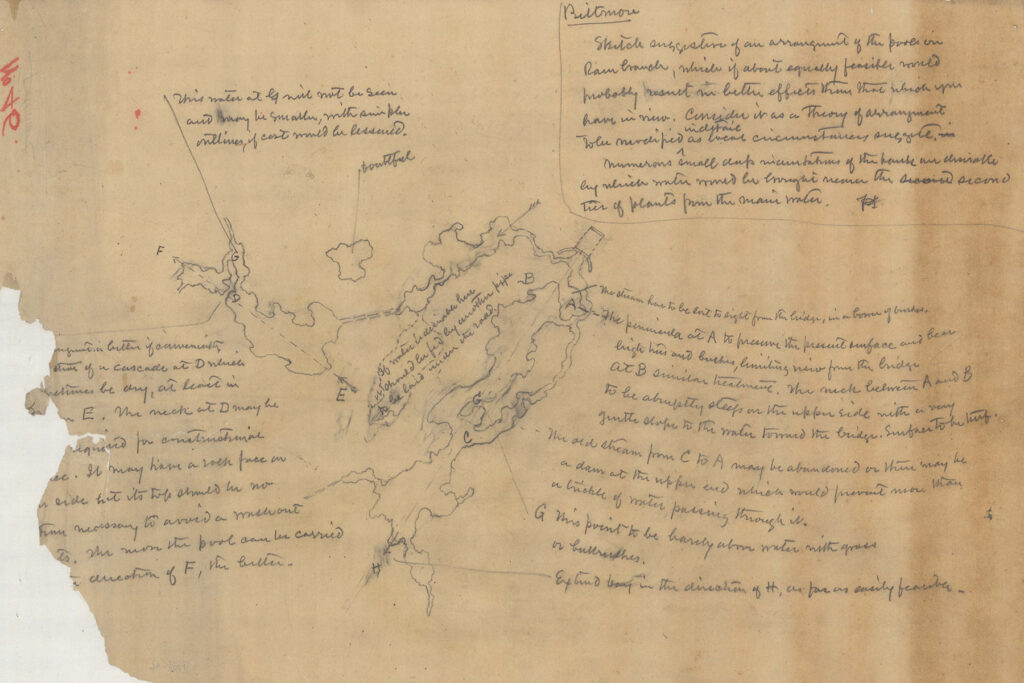 Biltmore
Sketch suggestive of an arrangement of the pools in
Ram branch, which if about equally feasible would
probably result in better effects than that which you
have in view. Consider it as a theory of arrangement
to be modified in detail as local circumstances suggest.
Numerous small deep incurvations of the bank are desirable
by which water would be brought nearer the second
tier of plants from the main water.
This water at G will not be seen
and may be smaller, with simpler
outlines, if cost would be lessened.
doubtful
F
G
D
E
B
A
G
C
H
If water is desirable here
it should be fed by another pipe
to be laid under the road
The stream has to be out to right from the bridge, in a bower of bushes.
The peninsula at A to preserve the present surface and bear
high trees and bushes, limiting view from the bridge
At B similar treatment. The neck between A and B
to be abruptly steep on the upper side with a very
gentle slope to the water toward the bridge. Surface to be turf.
The old stream from C to A may be abandoned or there may be
a dam at the upper end which would prevent more than
a trickle of water passing through it.
G This point to be barely above water with grass
or bullrushes.
Extend bay in the direction of H, as far as easily feasible.
is better if conveniently
of a cascade at D which
be dry, at least in
E. The neck at D may be
required for constructional
It may have a rock face on
side but its top should be no
necessary to avoid a washout
The more the pool can be carried
direction of F, the better.